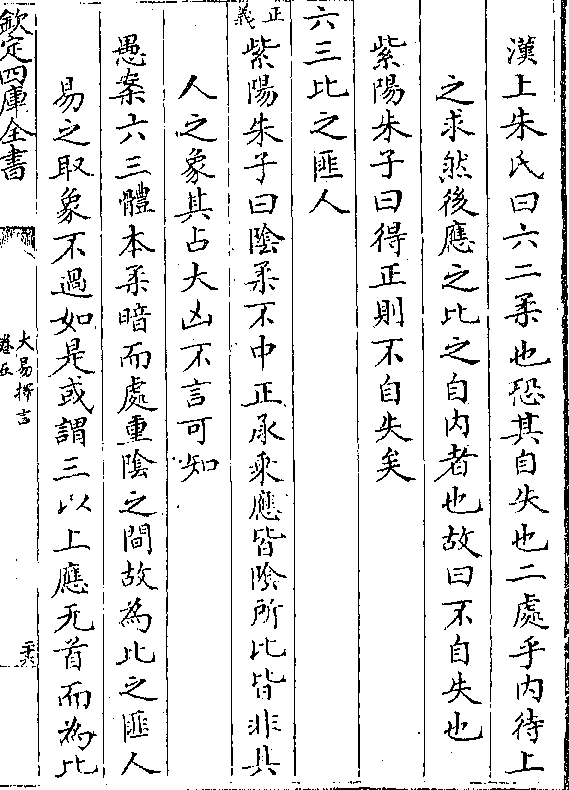 漢上朱氏曰六二柔也恐其自失也二處乎内待上
之求然後應之比之自内者也故曰不自失也
紫陽朱子曰得正則不自失矣
六三比之匪人
正義
紫陽朱子曰陰柔不中正承乘應皆陰所比皆非其
人之象其占大凶不言可知
愚案六三體本柔暗而處重陰之間故為比之匪人
易之取象不過如是或謂三以上應无首而為比
欽定四庫全書
大易擇言
卷五